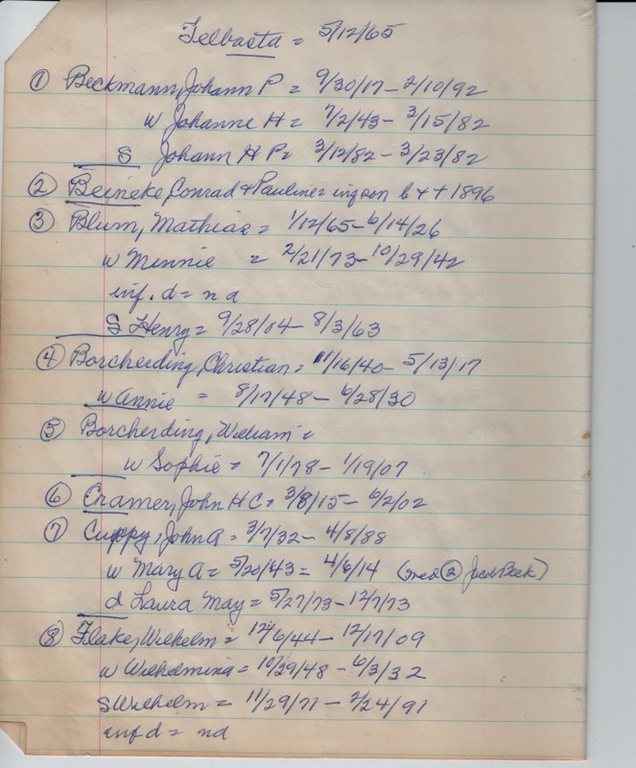 Telbasta = 5/12/65
① Beckmann, Johann P = 9/30/17 - 2/10/92
w Johanne H = 7/2/43 - 3/15/82
S Johann H P = 3/12/82 - 3/23/82
② Beineke, Conrad & Pauline = inf son b + + 1896
③ Blum, Mathias = 1/12/65 - 6/14/26
w Minnie = 2/21/73 - 10/29/42
inf. d = nd
S Henry = 9/28/04 - 8/3/63
④ Borcherding, Christian = 11/16/40 - 5/13/17
w Annie = 8/17/48 - 6/28/30
⑤ Borcherding, William =
w Sophie = 7/1/78 - 1/19/07
⑥ Cramer, John H C = 3/8/15 - 6/2/02
⑦ Cuppy, John A = 3/7/32 - 4/8/88
w Mary A = 5/20/43 = 4/6/14 (med ② Jacob Beck)
d Laura May = 5/27/73 - 12/7/73
⑧ Flake, Wilhelm = 12/6/44 - 12/17/09
w Wilhelmina = 10/29/48 - 6/3/32
S Wilhelm = 11/29/77 - 2/24/97
inf d = nd